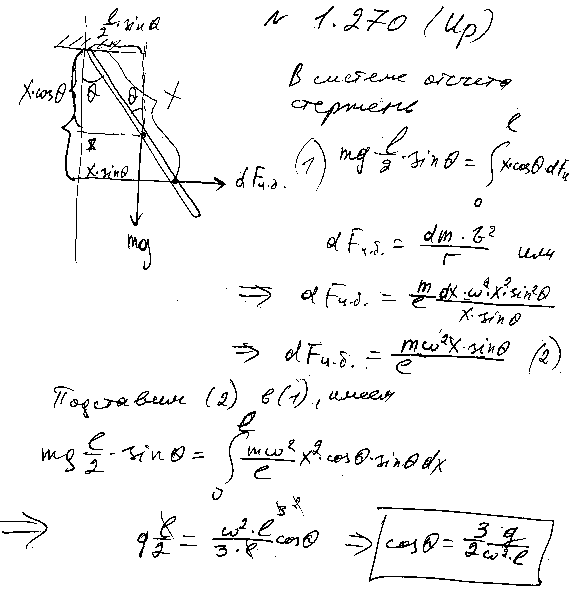 N 1.270 (Ир)
l/2·sinθ
x·cosθ
θ
θ
x
x·sinθ
dFц.б.
mg
В системе отсчета
стержень
(1) mg·l/2·sinθ = ∫₀ˡ x·cosθ dFц
dFц.б. = dm·v²/r или
⇒ dFц.б. = m/l dx·ω²·x²·sin²θ / x·sinθ
⇒ dFц.б. = mω²x·sinθ / l (2)
Подставим (2) в (1), имеем
mg l/2·sinθ = ∫₀ˡ mω²/l x²·cosθ·sinθ dx
⇒ g l/2 = ω²·l³/3·l cosθ ⇒ cosθ = 3/2 g/ω²·l